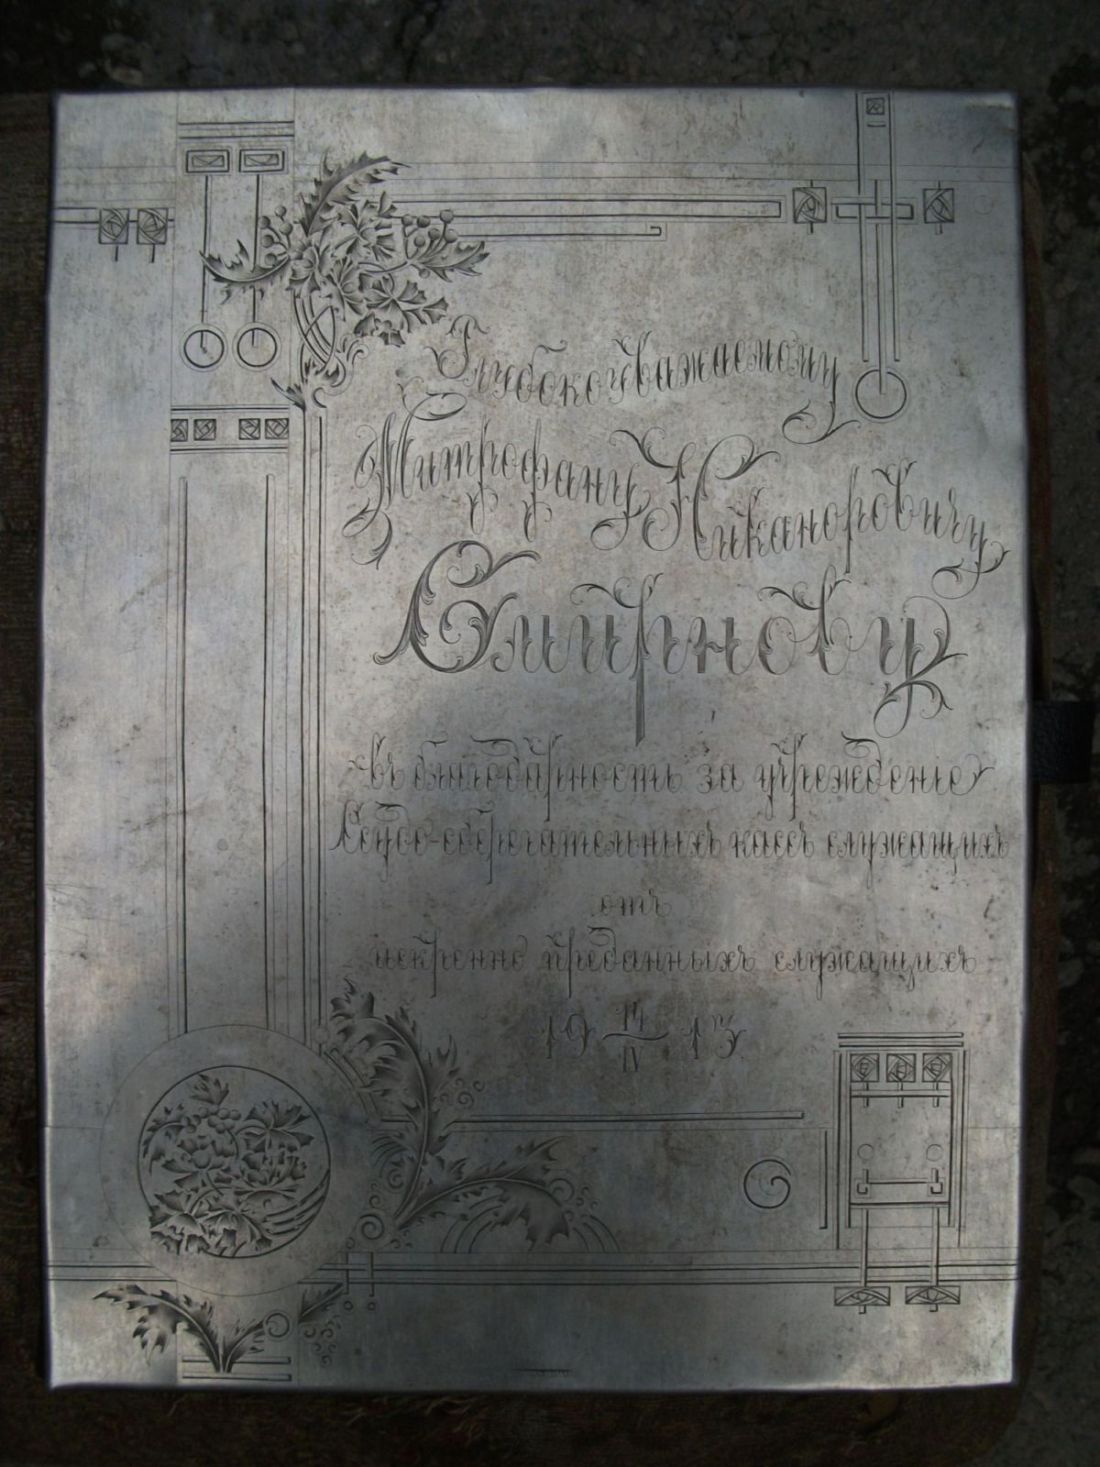 Глубокоуважаемому
Митрофану Никаноровичу
Смирнову
въ благодарность за учрежденіе
Ссудо-сберегательныхъ кассъ служащихъ
отъ
искренно преданныхъ служащихъ
19 14/IV 13